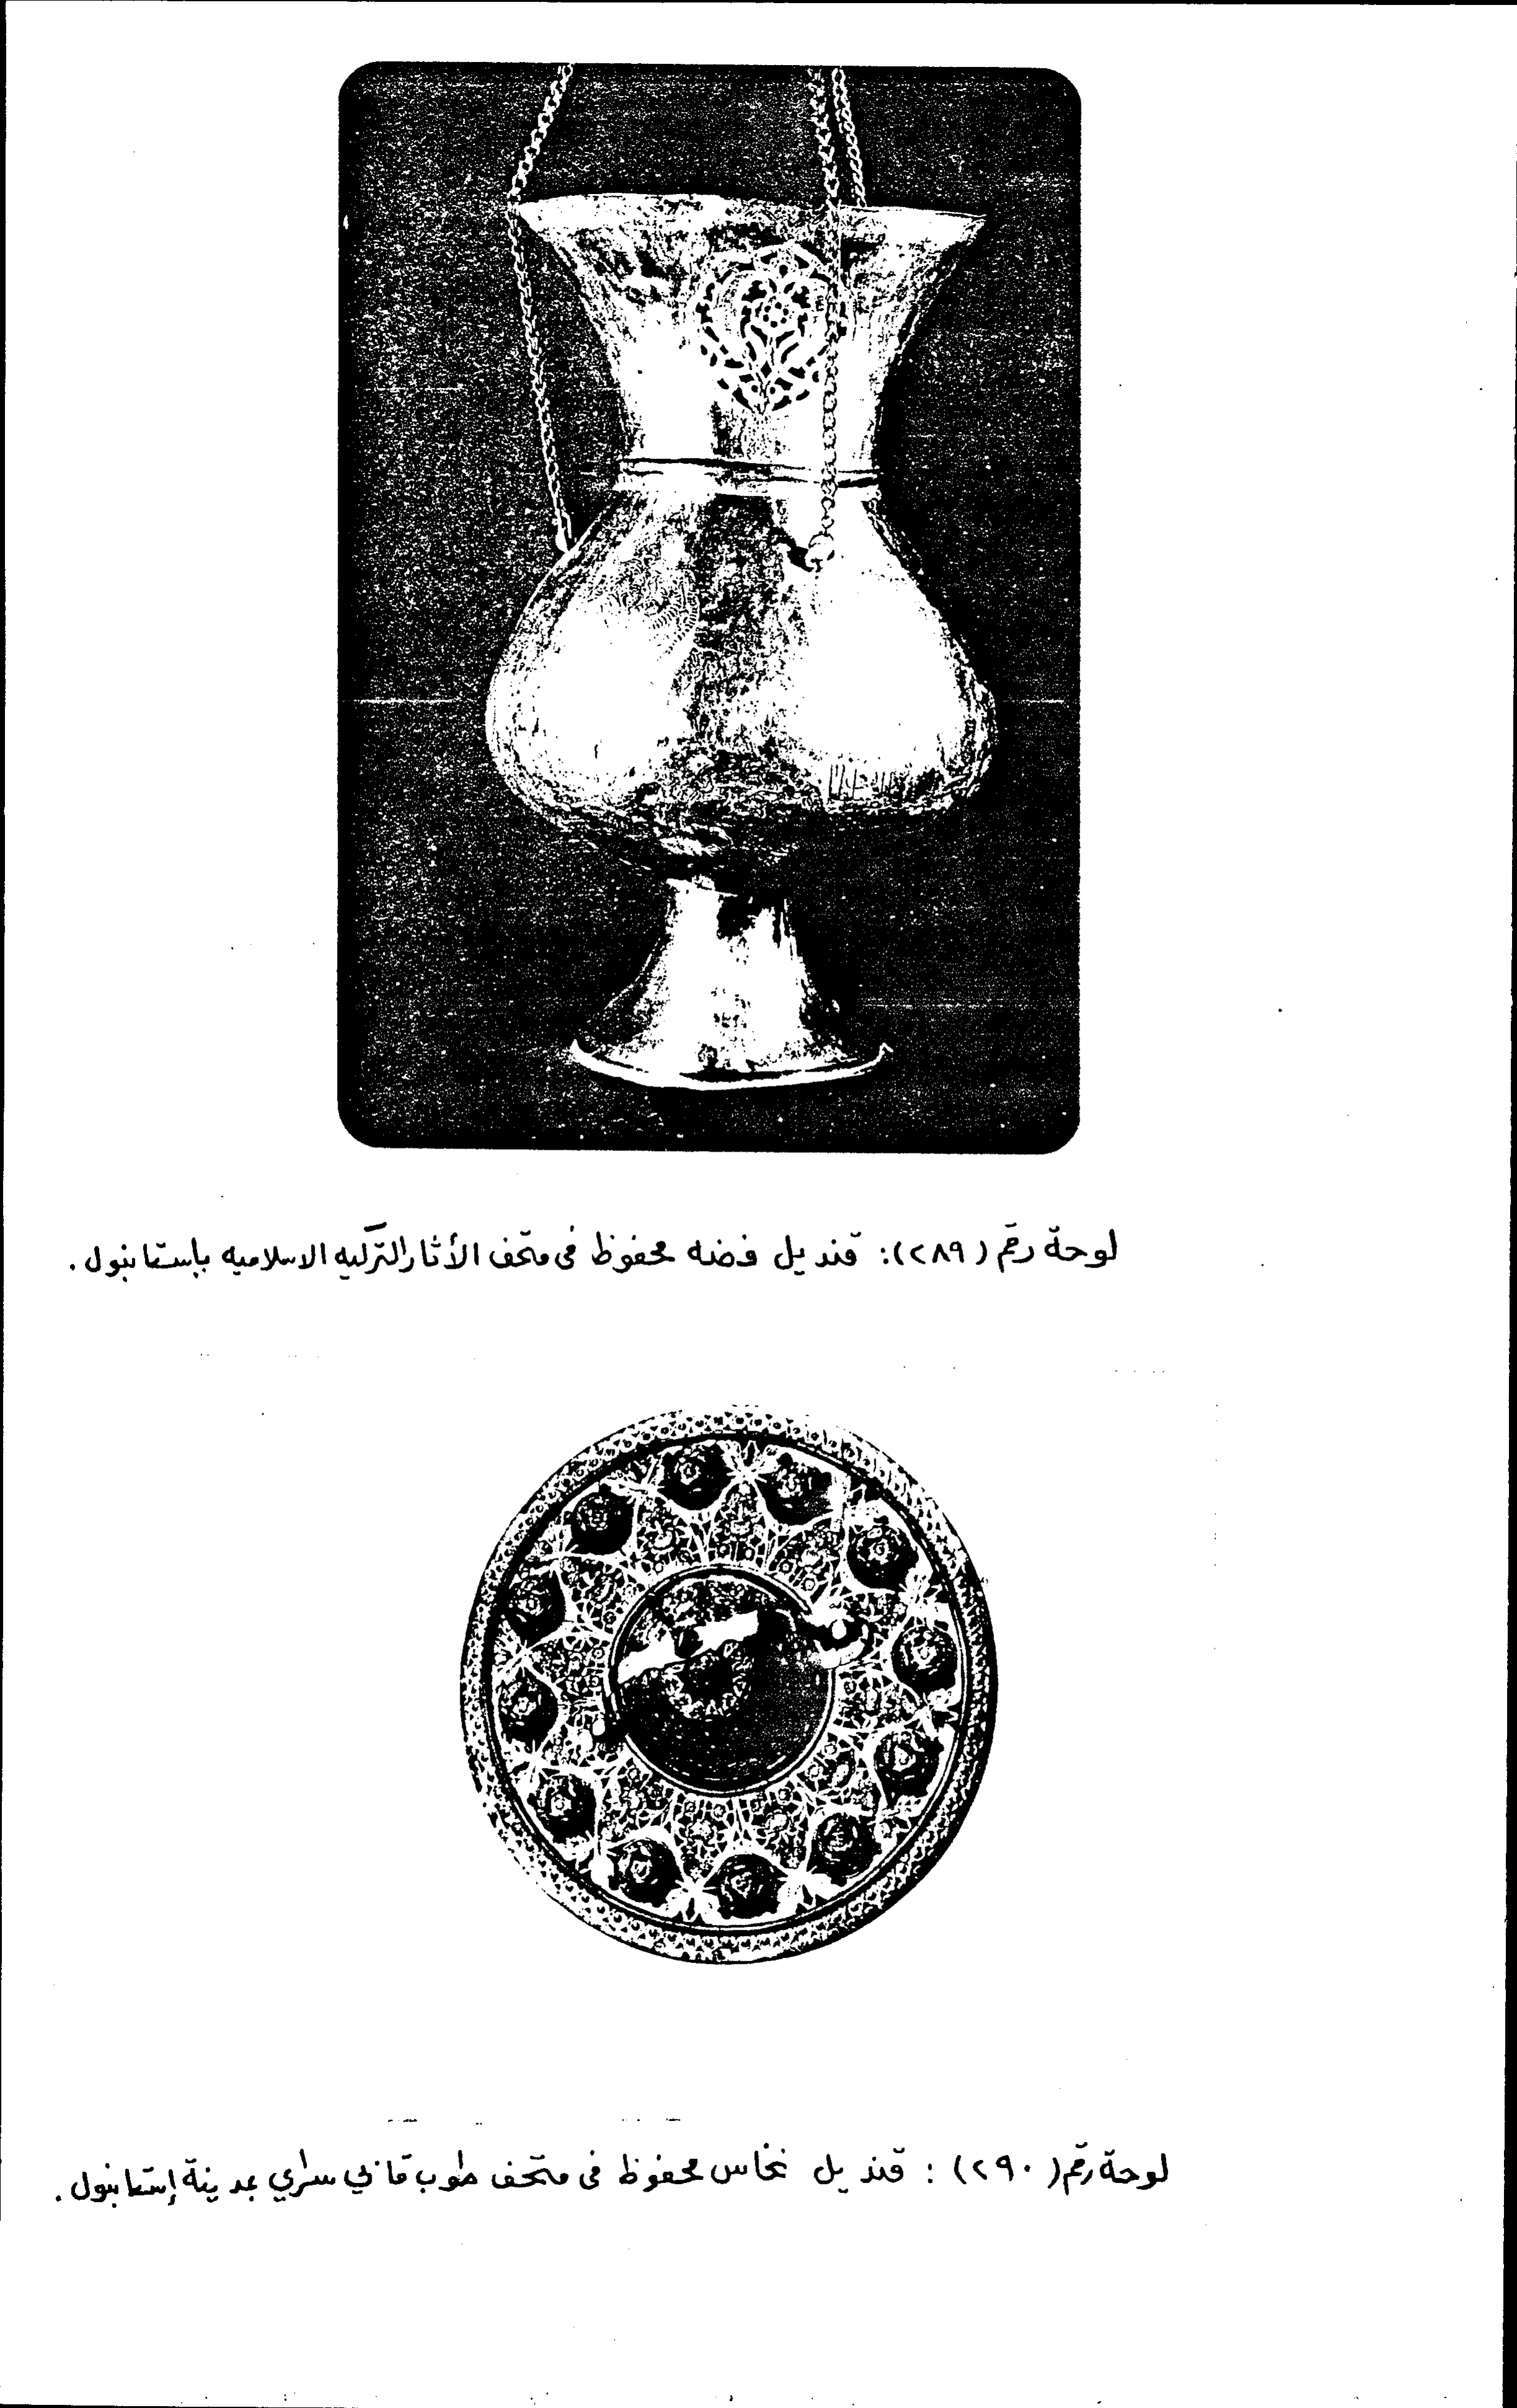 لوحة رقم (٢٨٩): قنديل فضه محفوظ فى متحف الأثار التركيه الاسلاميه بإستانبول .
لوحة رقم (٢٩٠) : قنديل نحاس محفوظ فى متحف طوب قابي سراي بمدينة إستانبول .